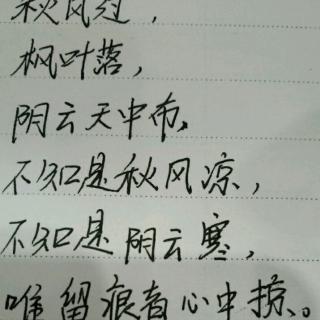 秋风过，
枫叶落，
阴云天中布，
不知是秋风凉，
不知是阴云寒，
唯留痕着心中掠。